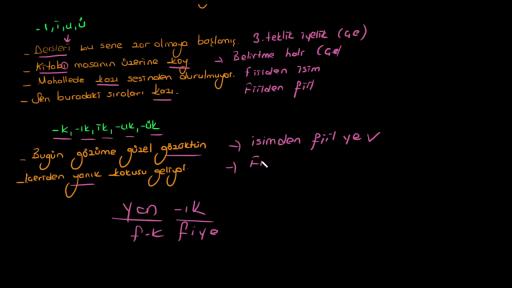 -ı, i, u, ü
- Dersleri bu sene zor olmaya başlamış. 3. teklik iyelik (Çe)
- Kitabı masanın üzerine koy → Belirtme hali (Çe)
- Mahallede kazı sesinden durulmuyor. Fiilden isim
- Sen buradaki sıraları kazı. Fiilden fiil
-k, -ık, ik, -uk, -ük
- Bugün gözüme güzel gözüktün → isimden fiil ye ✓
- İçeriden yanık kokusu geliyor. → Fi
yan -ık
f-k fiye